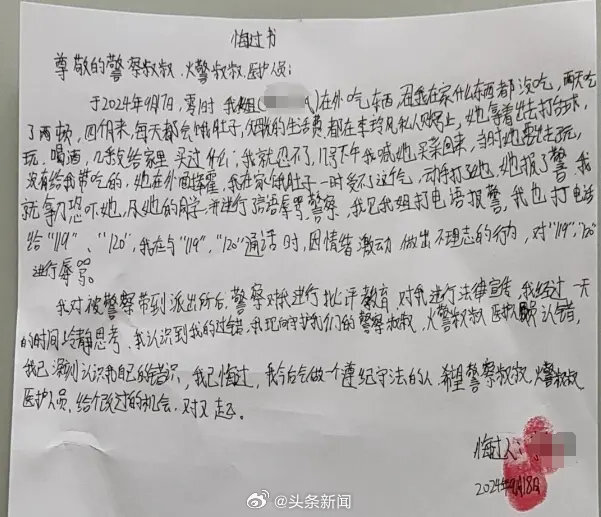 悔过书
尊敬的警察叔叔、火警叔叔、医护人员:
于2024年9月7日,零时 我姐( )在外吃东西,因我在家什么东西都没吃,两天吃
了两顿,四个月来,每天都会饿肚子,父亲的生活费都在李玲凤私人账号上,她拿着出去打台球,
玩,喝酒,几乎没给家里买过什么;我就忍不了,17号下午我喊她买菜回来,当时她要出去玩,
没有给我带吃的,她在外面挥霍,我在家饿肚子一时受不了这个气,动手打了她,她报了警,我
就拿刀恐吓她,及她的房子,并进行言语辱骂警察,我见我姐打电话报警,我也打电话
给"119"、"120",我在与"119","120"通话时,因情绪激动 做出不理志的行为,对"119","120"
进行辱骂。
我对被警察带到派出所后,警察对我进行批评教育,对我进行法律宣传,我经过一天
的时间冷静思考,我认识到我的过错,我现向守护我们的警察叔叔,火警叔叔 医护 认错,
我已深刻认识我自己的错识,我已悔过,我今后会做一个遵纪守法的人,希望警察叔叔,火警叔叔
医护人员,给个改过的机会,对不起。
悔过人:
2024年9月18日
@头条新闻